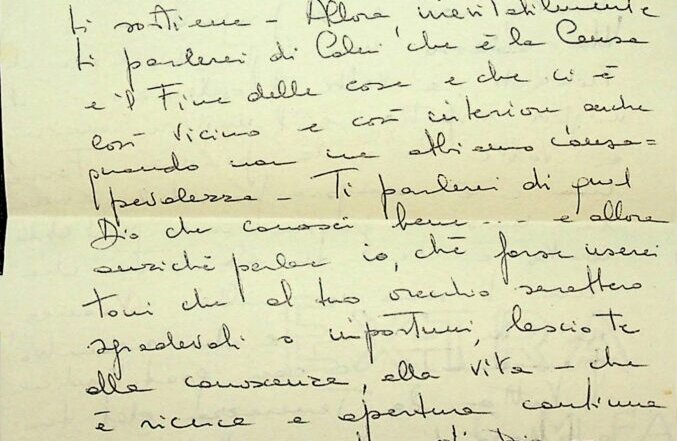 ti sostiene - Allora, inevitabilmente
ti parlerei di Colui che è la Causa
e il Fine delle cose e che ci è
così vicino e così interiore anche
quando non ne abbiamo consa=
pevolezza - Ti parlerei di quel
Dio che conosci bene --- e allora
anziché parlar io, ché forse userei
toni che al tuo orecchio sarebbero
sgradevoli o importuni, lascio te
alla conoscenza, alla vita - che
è ricerca e apertura continua
di Dio